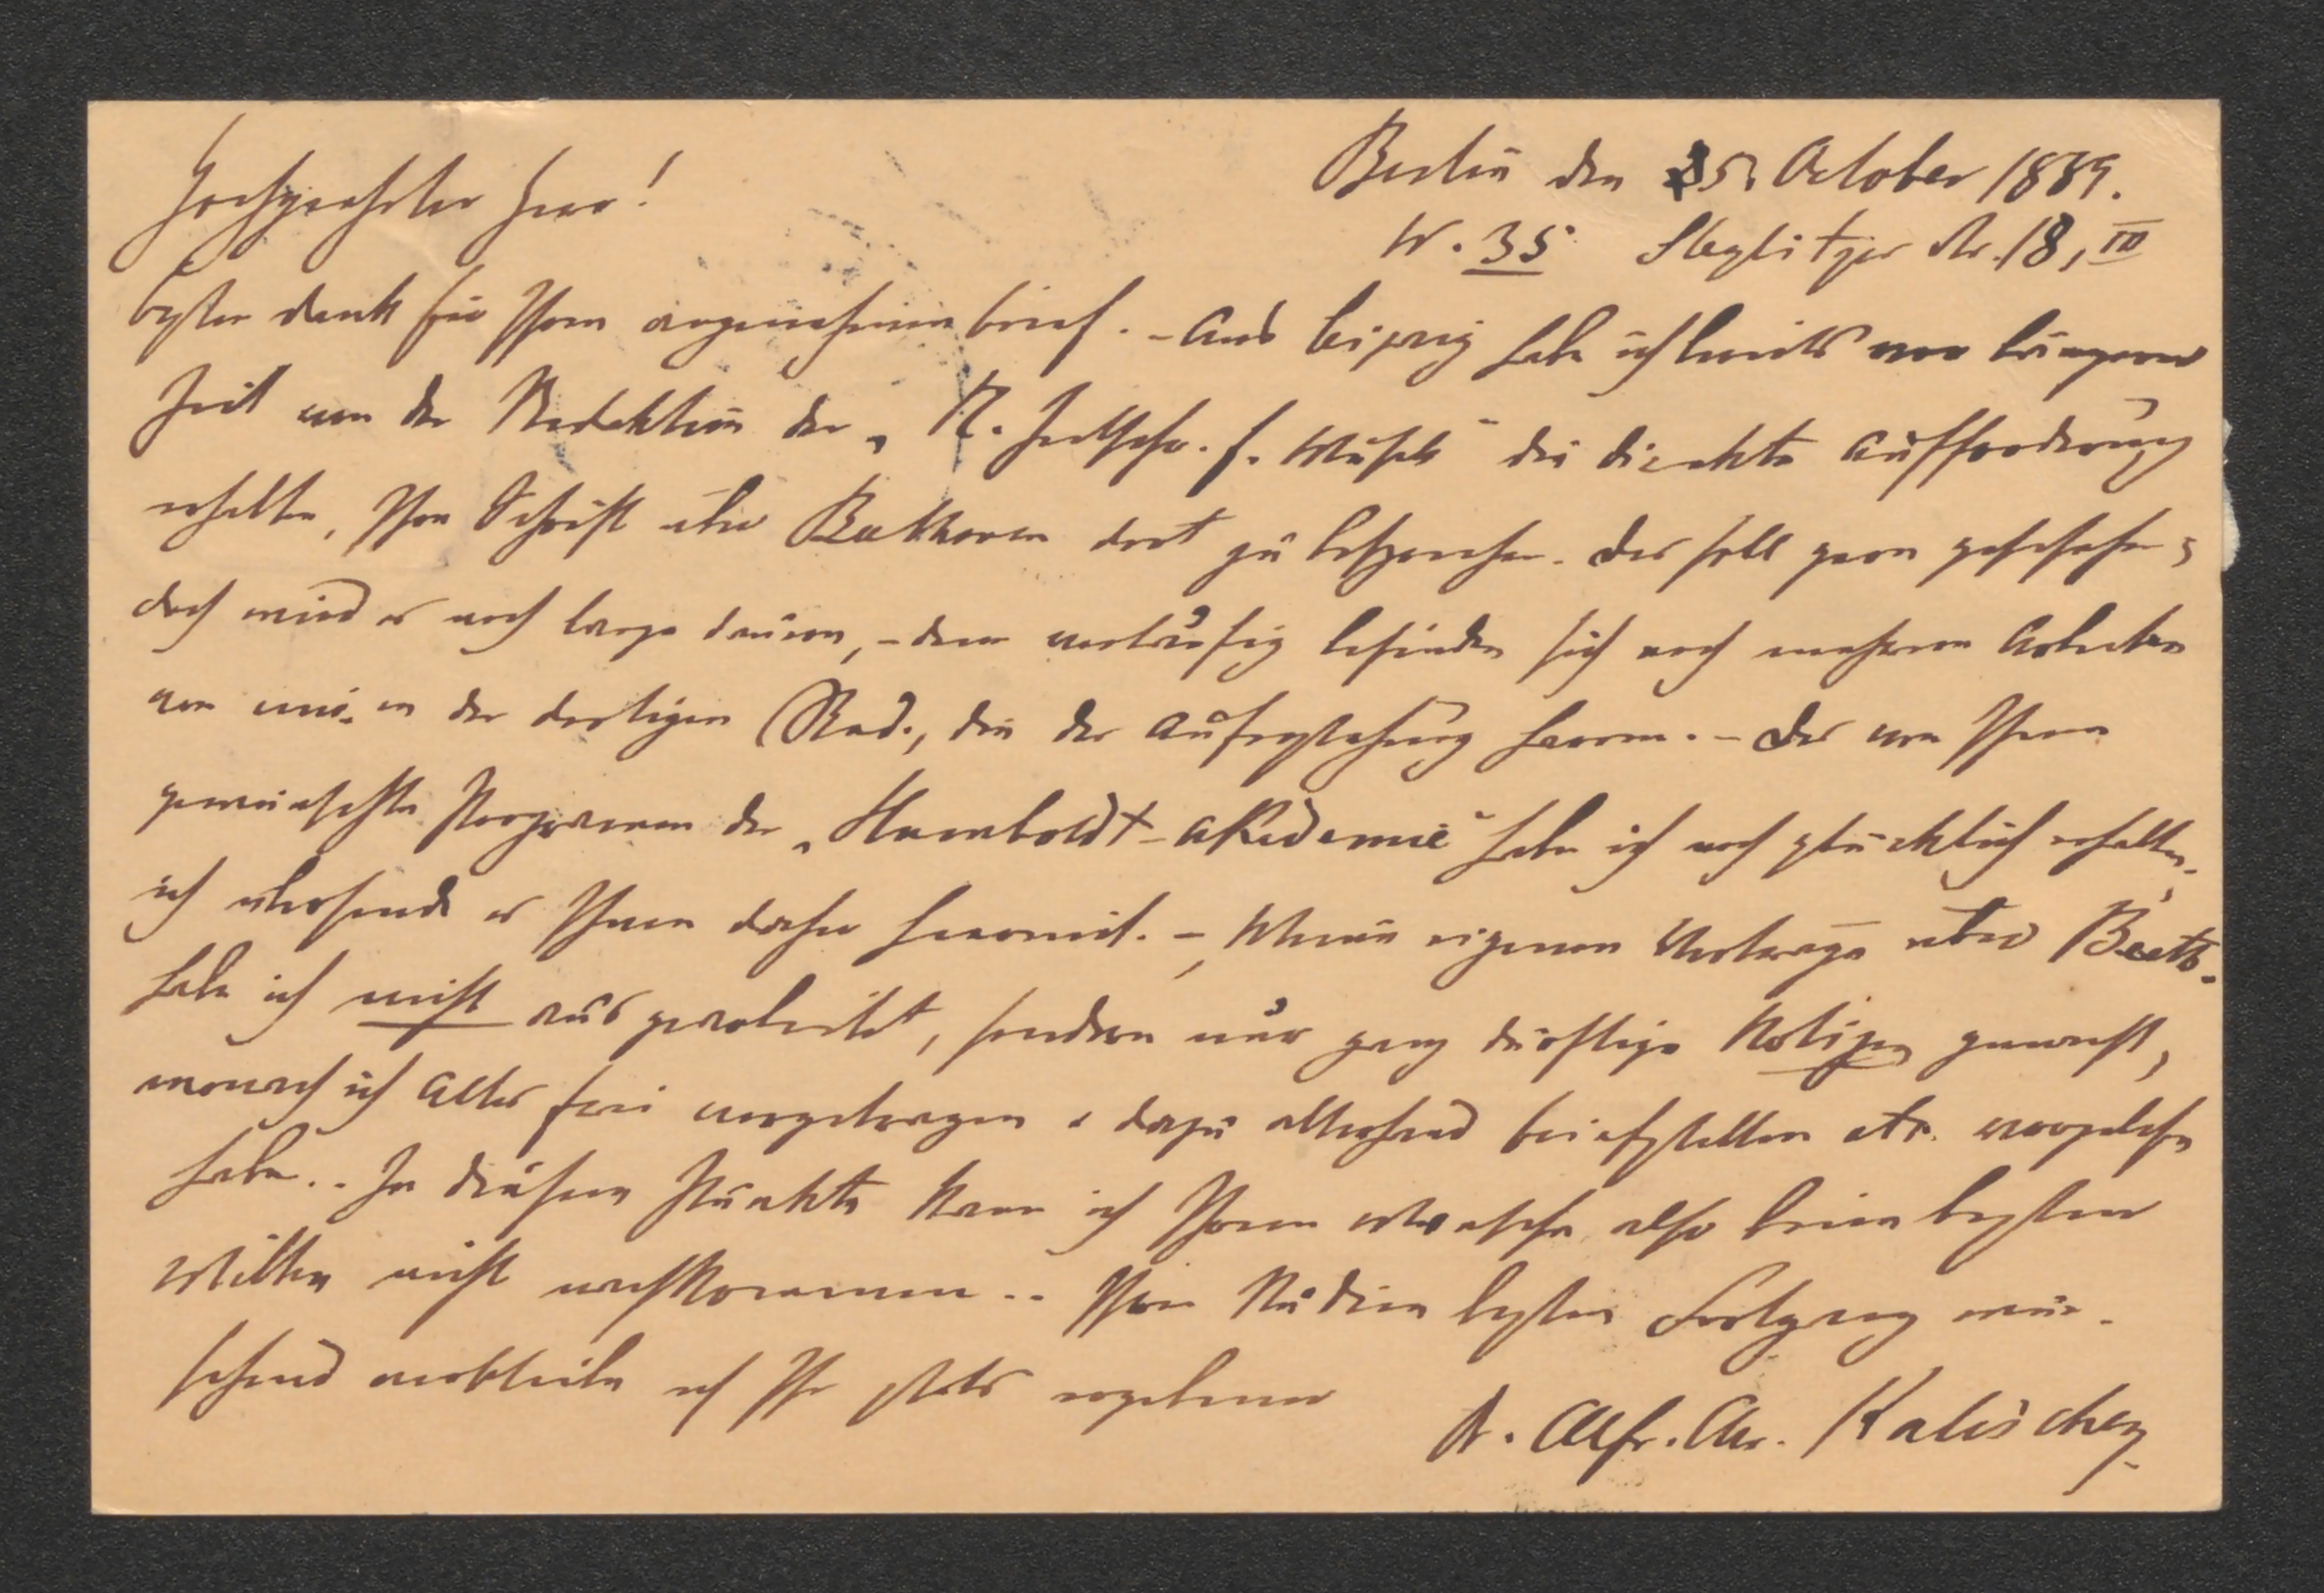 Berlin den 25. October 1889.
W. 35 Steglitzer Str. 18, III
Hochgeehrter Herr!
besten Dank für Ihren angenehmen Brief. - Aus Leipzig habe ich bereits vor längerer
Zeit von der Redaktion der „N. Zeitschr. f. Musik" die direkte Aufforderung
erhalten, Ihre Schrift über Beethoven dort zu besprechen. Das soll gern geschehen;
doch wird es noch lange dauern, - denn vorläufig befinden sich noch mehrere Arbeiten
von mir in der dortigen Red., die der Auferstehung harren. - Das von Ihnen
gewünschte Programm der „Humboldt-Akademie" habe ich noch glücklich erhalten,
ich übersende es Ihnen daher hiermit. - Meine eigenen Vorträge über Beeth.
habe ich nicht ausgearbeitet, sondern nur ganz dürftige Notizen gemacht,
wonach ich Alles frei vorgetragen u dazu allerhand Briefstellen etc. vorgelesen
habe.. In diesem Punkte kann ich Ihrem Wunsche also beim besten
Willen nicht nachkommen.. Ihren Studien besten Fortgang wün-
schend verbleibe ich Ihr stets ergebener
Dr. Alfr. Chr. Kalischer